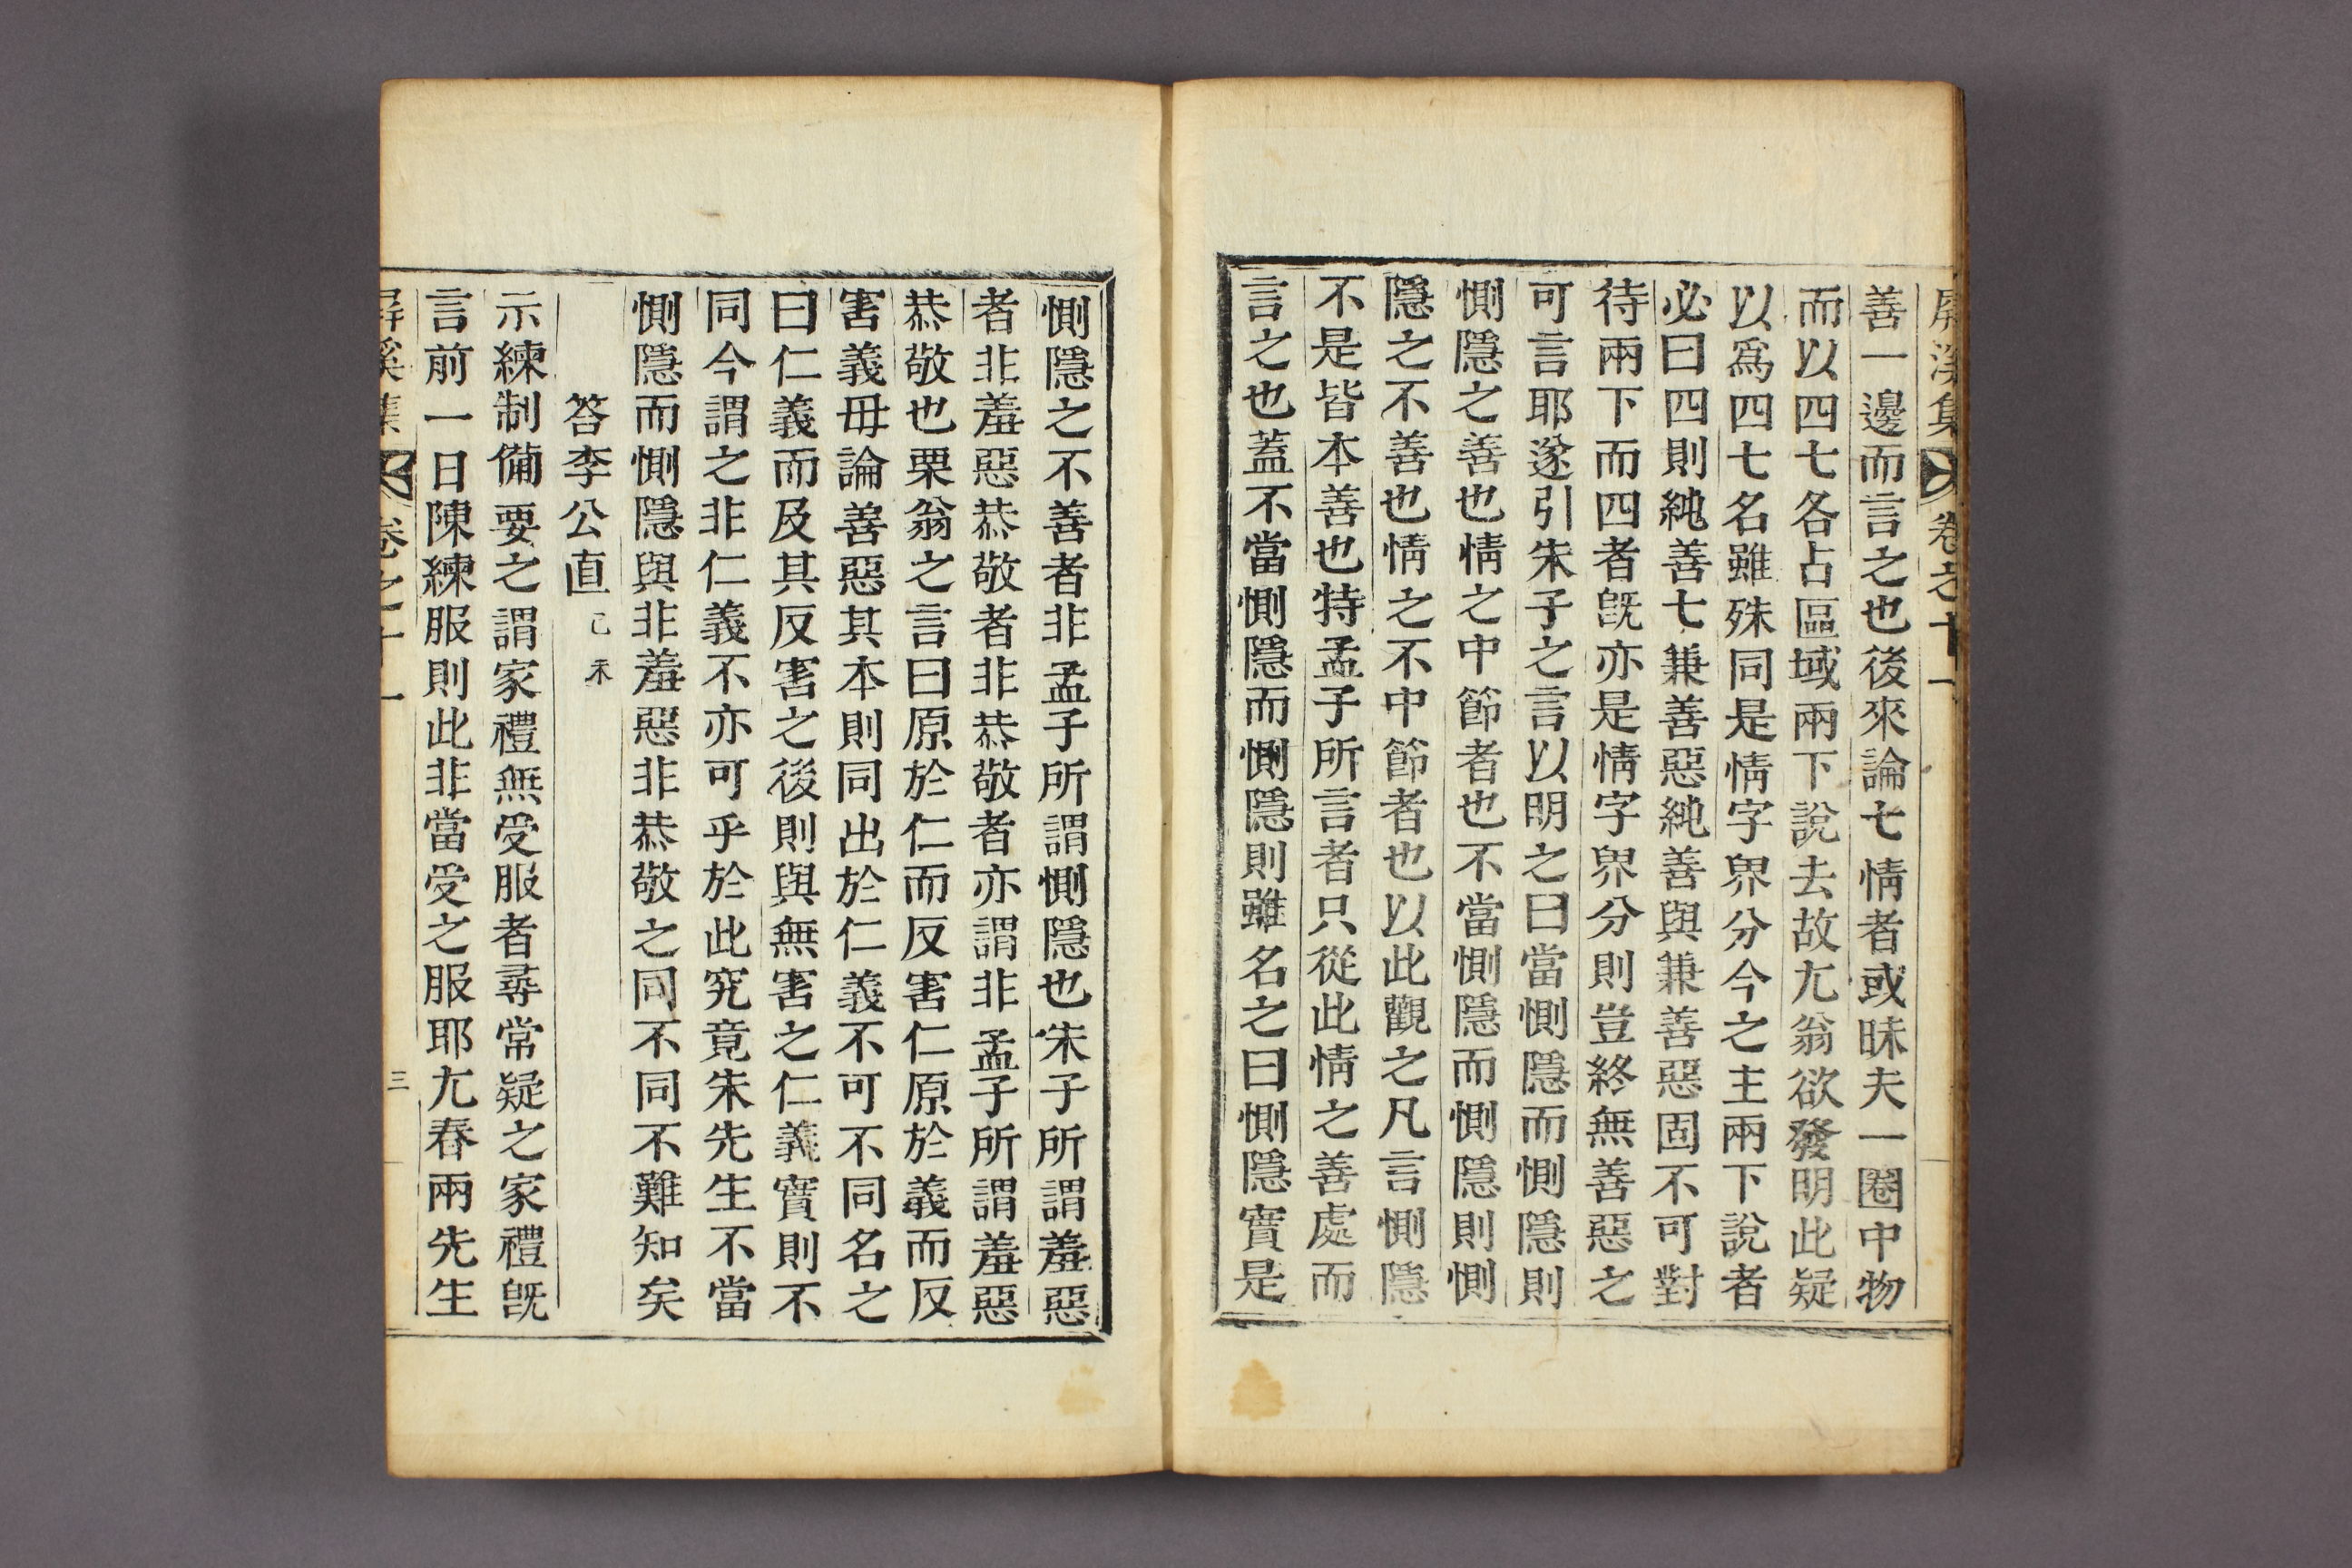 屏溪集 卷之十一
善一邊而言之也後來論七情者或昧夫一圈中物
而以四七各占區域兩下說去故尤翁欲發明此疑
以爲四七名雖殊同是情字界分今之主兩下說者
必曰四則純善七兼善惡純善與兼善惡固不可對
待兩下而四者旣亦是情字界分則豈終無善惡之
可言耶遂引朱子之言以明之曰當惻隱而惻隱則
惻隱之善也情之中節者也不當惻隱而惻隱則惻
隱之不善也情之不中節者也以此觀之凡言惻隱
不是皆本善也特孟子所言者只從此情之善處而
言之也蓋不當惻隱而惻隱則雖名之曰惻隱實是
惻隱之不善者非孟子所謂惻隱也朱子所謂羞惡
者非羞惡恭敬者非恭敬者亦謂非孟子所謂羞惡
恭敬也栗翁之言曰原於仁而反害仁原於義而反
害義毋論善惡其本則同出於仁義不可不同名之
曰仁義而及其反害之後則與無害之仁義實則不
同今謂之非仁義不亦可乎於此究竟朱先生不當
惻隱而惻隱與非羞惡非恭敬之同不同不難知矣
答李公直 己未
示練制備要之謂家禮無受服者尋常疑之家禮旣
言前一日陳練服則此非當受之服耶尤春兩先生
屛溪集 卷之十一 三